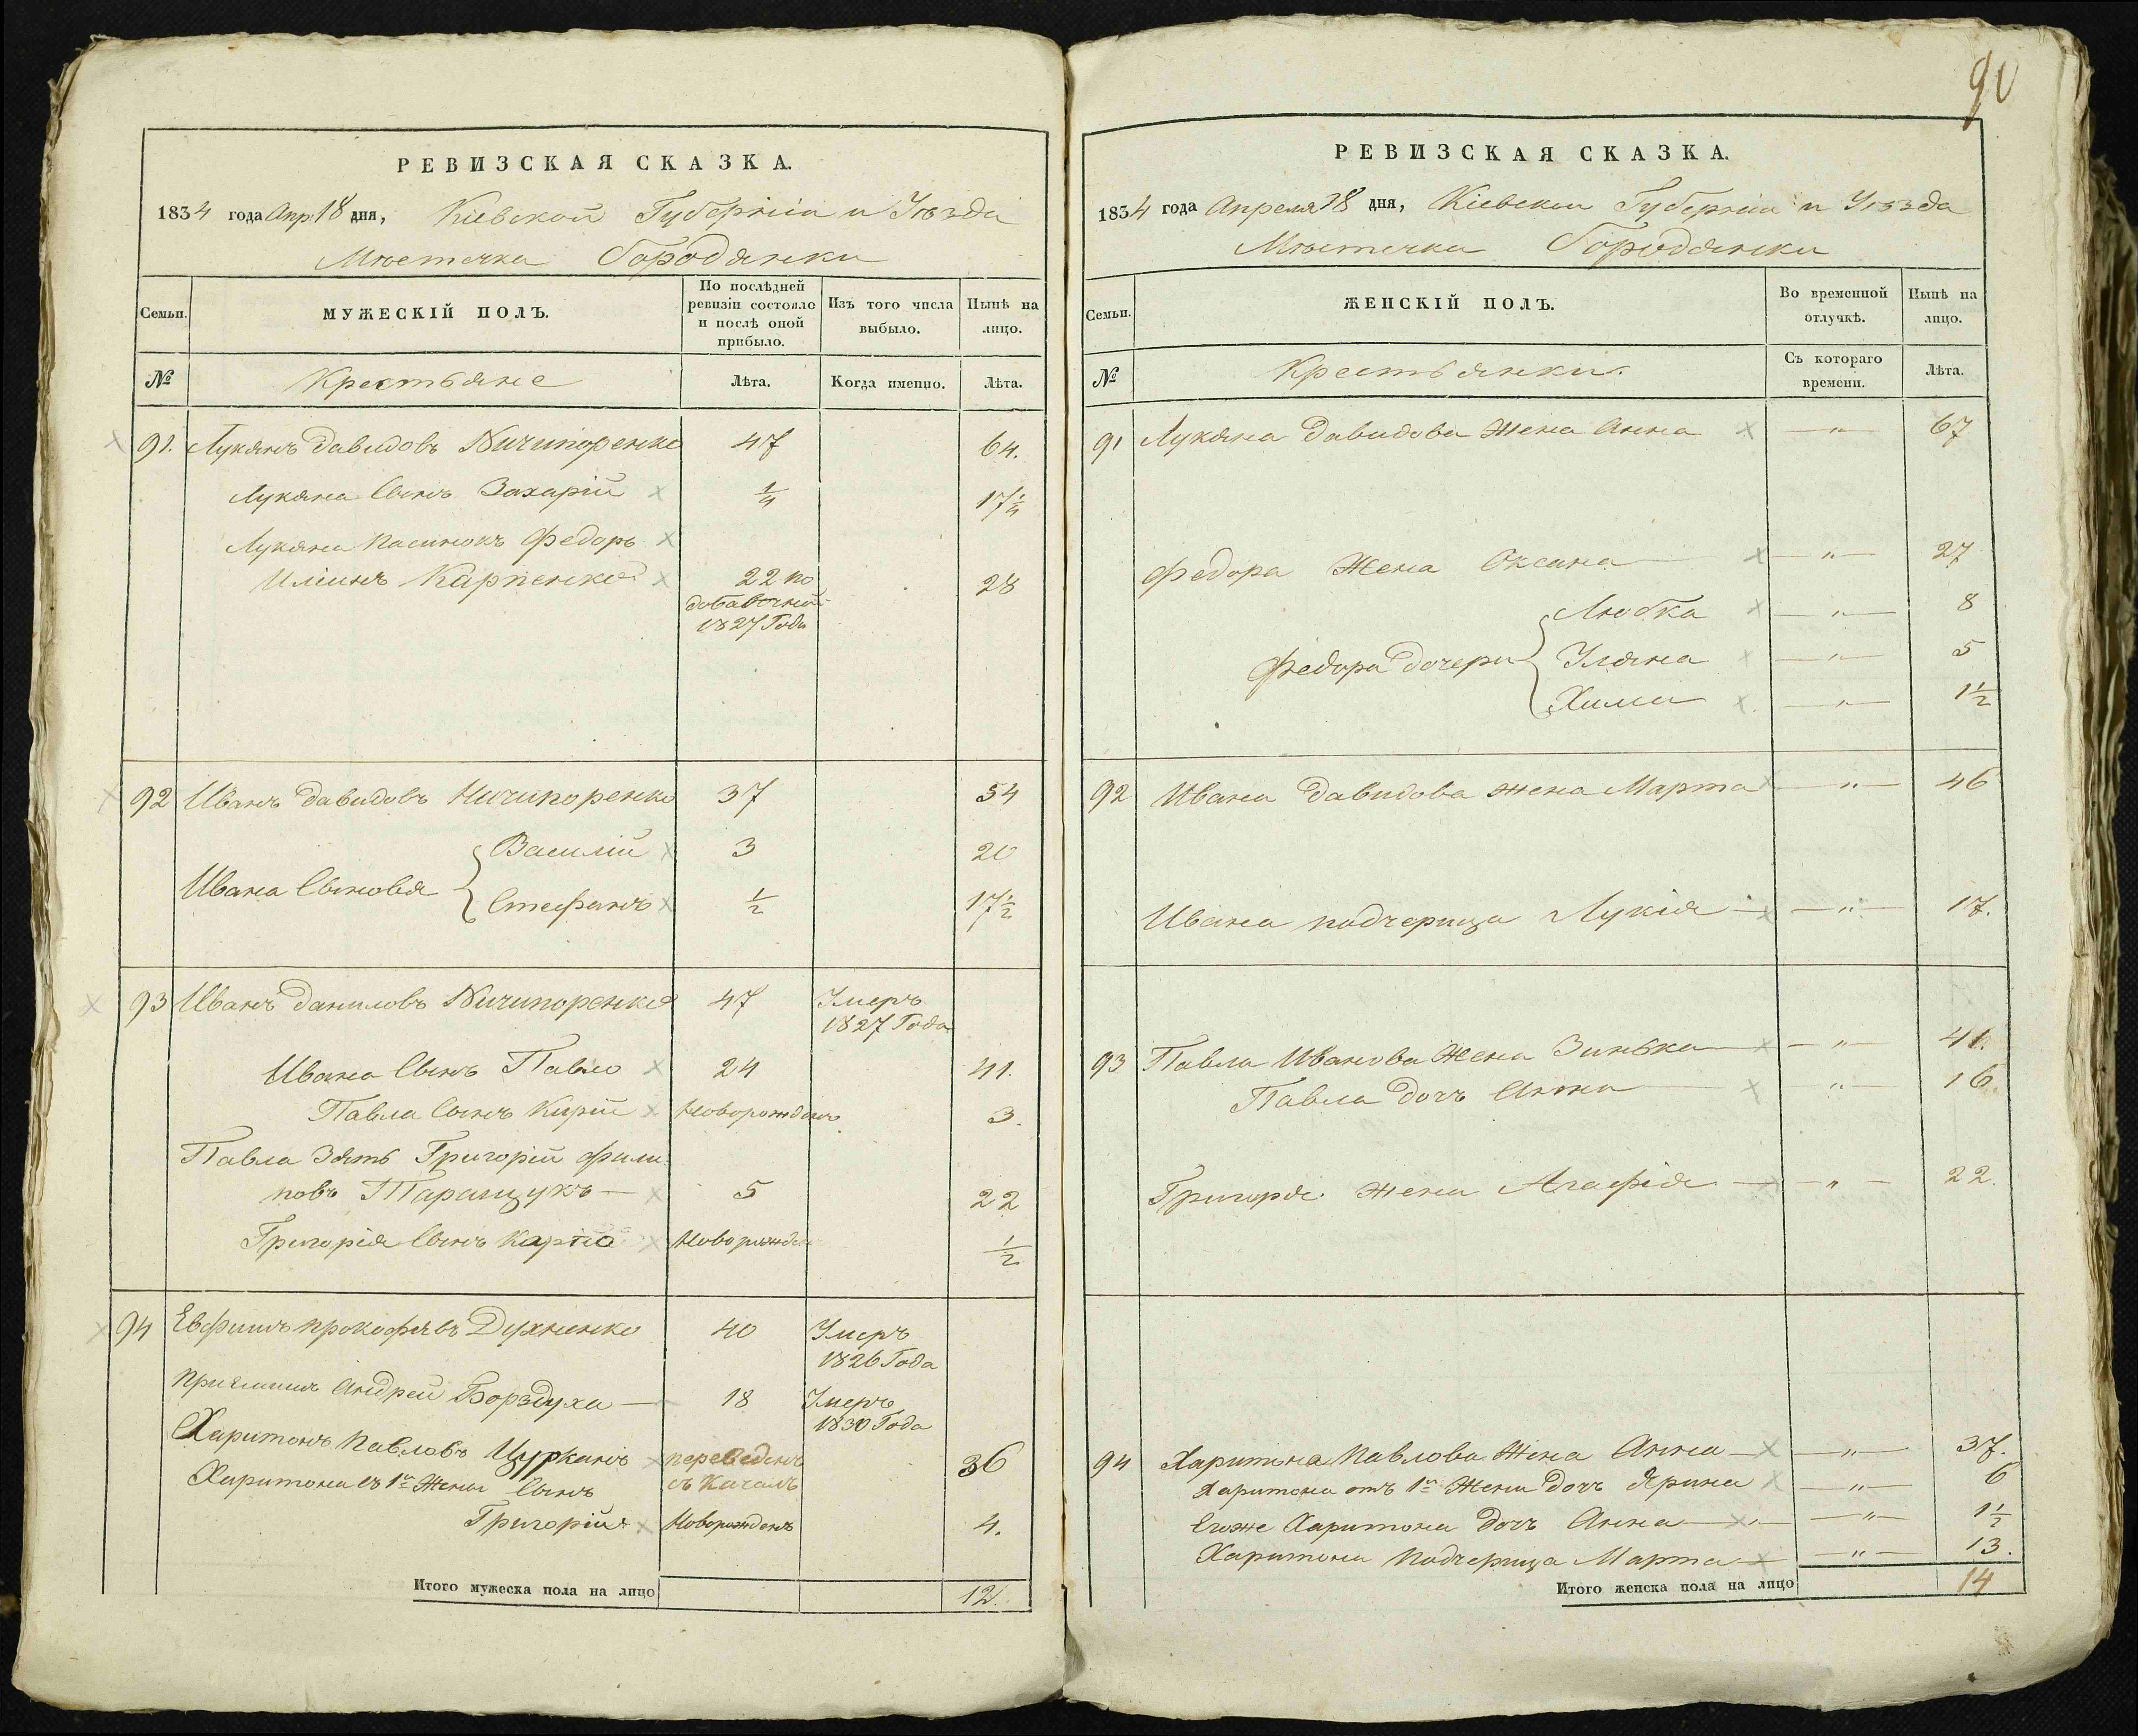 90
РЕВИЗСКАЯ СКАЗКА.
1834 года Апр. 18 дня, Кіевской Губерніи и Уѣзда
Мѣстечка Городянки
Семьи.
МУЖЕСКІЙ ПОЛЪ.
По послѣдней
ревизіи состояло
и послѣ оной
прибыло.
Изъ того числа
выбыло.
Нынѣ на
лицо.
№
Крестьяне
Лѣта.
Когда именно.
Лѣта.
91. Лукянъ Давидовъ Ничипоренко 47 64.
Лукяна Сынъ Захарій 1/4 17 1/4
Лукяна пасинокъ Федоръ
Иліинъ Карпенко 22 по 28
добавочной
1827 Года
92 Иванъ Давидовъ Ничипоренко 37 54
Василій 3 20
Ивана Сыновья
Стефанъ 1/2 17 1/2
93 Иванъ Даниловъ Ничипоренко 47 Умеръ
1827 Года
Ивана Сынъ Павло 24 41.
Павла Сынъ Кирій Новорожденъ 3.
Павла Зять Григорій Фили
повъ Таращукъ 5 22
Григорія Сынъ Новорожден 1/2
94 Евфимъ Прокофъевъ Духненко 40 Умеръ
1826 Года
Пріемишъ Андрей Борздуха 18 Умеръ
1830 Года
Харитонъ Павловъ Цурканъ переведенъ 36
Харитона съ 1й Жены Сынъ съ Качалъ
Григорій Новорожденъ 4.
Итого мужеска пола на лицо 12.
РЕВИЗСКАЯ СКАЗКА.
1834 года Апреля 18 дня, Кіевской Губерніи и Уѣзда
Мѣстечка Городянки
Семьи.
ЖЕНСКІЙ ПОЛЪ.
Во временной
отлучкѣ.
Нынѣ на
лицо.
№
Крестьянки.
Съ котораго
времени.
Лѣта.
91 Лукяна Давидова Жена Анна — " — 67
Федора Жена Оксана — " — 27
Любка — " — 8
Федора Дочери Уляна — " — 5
Хима — " — 1 1/2
92 Ивана Давидова жена Марта — " — 46
Ивана подчерица Лукія — " — 17.
93 Павла Иванова Жена Зинька — " — 41.
Павла Дочъ Анна — " — 16.
Григоря жена Агафія — " — 22.
94 Харитона Павлова Жена Анна — " — 37.
Харитона отъ 1й Жены Дочъ Ярина — " — 6
Егоже Харитона Дочъ Анна — " — 1 1/2
Харитона Подчерица Марта — " — 13.
Итого женска пола на лицо 14